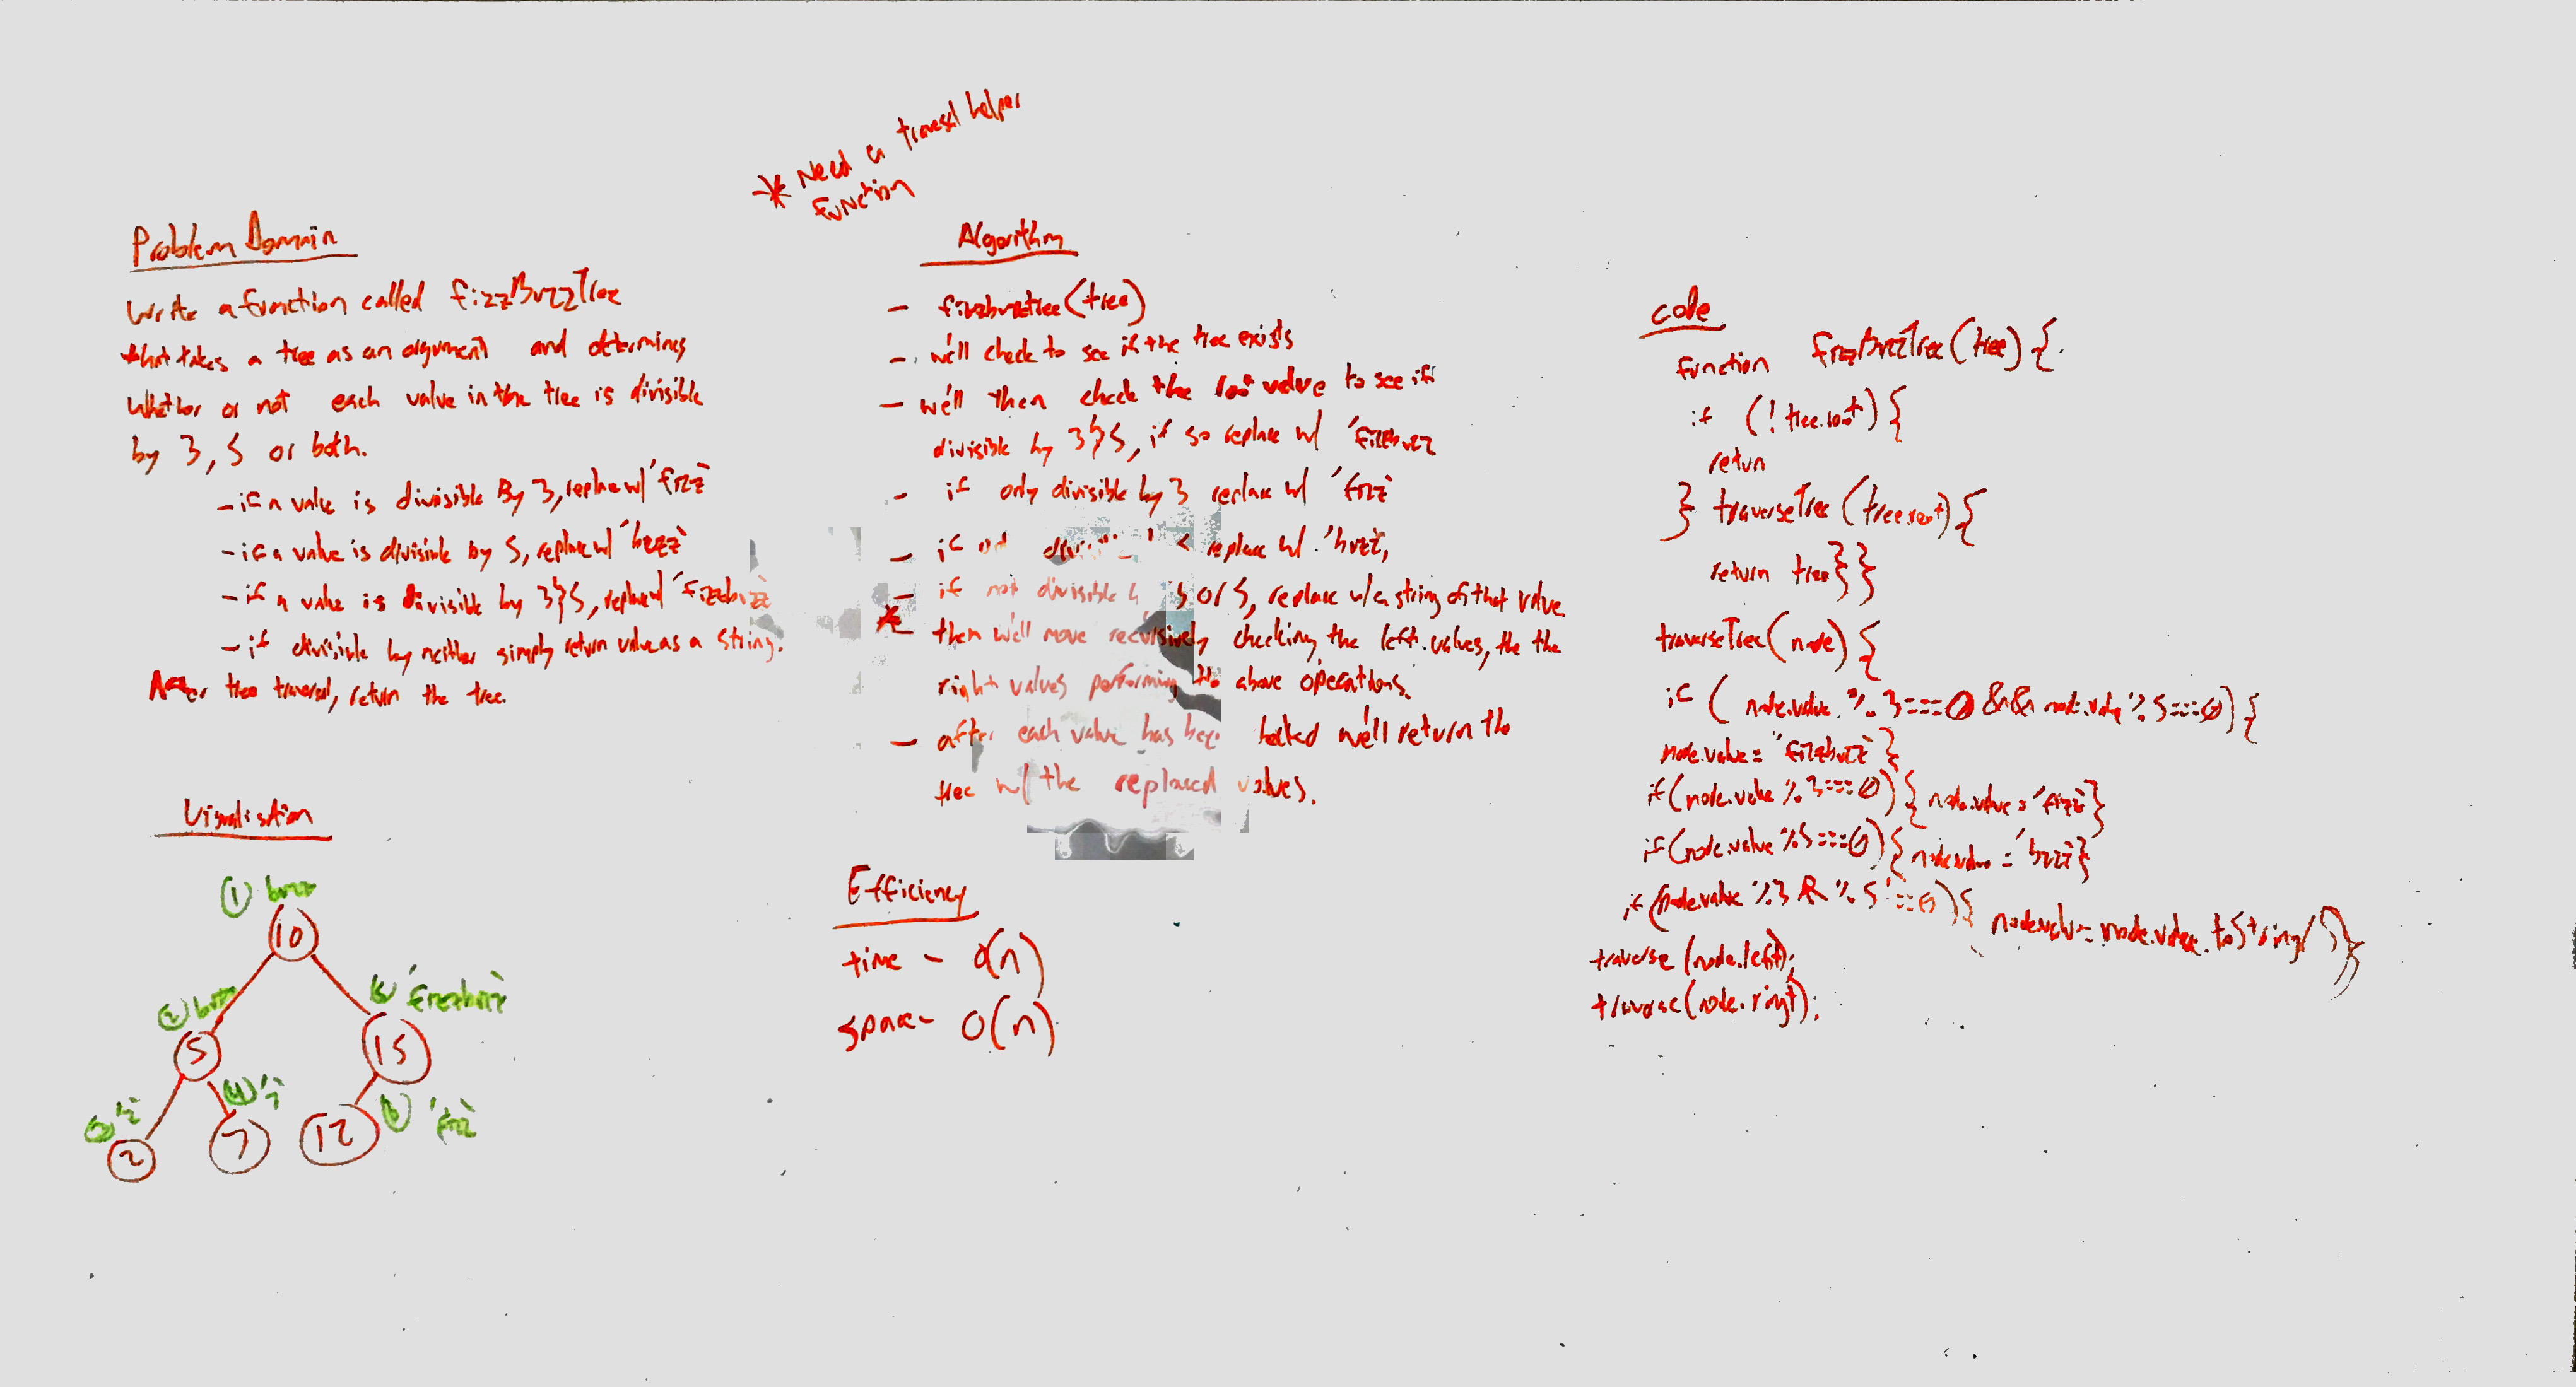 * Need a traversal helper
function
Problem Domain
Write a function called fizzBuzzTree
that takes a tree as an argument and determines
whether or not each value in the tree is divisible
by 3, 5 or both.
- if a value is divisible By 3, replace w/ 'fizz'
- if a value is divisible by 5, replace w/ 'buzz'
- if a value is divisible by 3 & 5, replace w/ 'fizzbuzz'
- if divisible by neither simply return value as a string.
After tree traversal, return the tree.
Visualisation
① buzz
10
② buzz
⑤ 'fizzbuzz'
5
15
'2'
④ '7'
⑥ 'fizz'
2
7
12
Algorithm
- fizzbuzztree(tree)
- we'll check to see if the tree exists
- we'll then check the root value to see if
divisible by 3 & 5, if so replace w/ 'fizzbuzz
- if only divisible by 3 replace w/ 'fizz'
- if replace w/ 'buzz',
- if not divisible 3 or 5, replace w/ a string of that value.
* then we'll move recursively checking the left values, the the
right values performing the above operations.
- after each value has been we'll return the
tree w/ the replaced values.
Efficiency
time - O(n)
space - O(n)
code
function fizzBuzzTree(tree) {
if (!tree.root) {
return
} traverseTree(tree.root) {
return tree}}
traverseTree(node) {
if (node.value % 3 === 0 && node.value % 5 === 0) {
node.value = "fizzbuzz' }
if(node.value % 3 === 0) { node.value = 'fizz' }
if(node.value % 5 === 0) { node.value = 'buzz' }
if (node.value % 3 & % 5 !== 0) { node.value = node.value.toString() }}
traverse(node.left);
traverse(node.right);